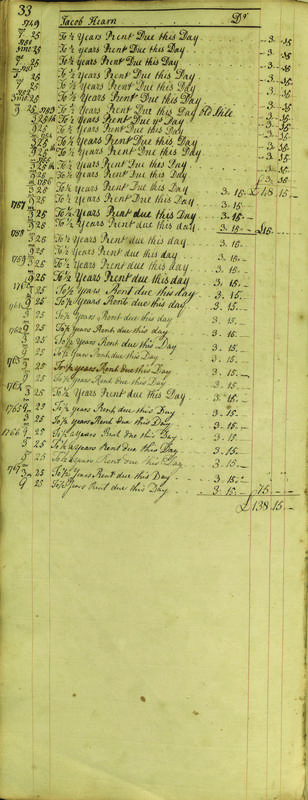 33
1749 Jacob Hearn Dr
9 25 To ½ Years Rent Due this Day 3 15
3 25 To ½ Years Rent Due this Day 3 15
25 To ½ Years Rent Due this Day 3 15
25 To ½ Years Rent Due this Day 3 15
25 To ½ Years Rent Due this Day 3 15
25 To ½ Years Rent Due this Day 3 15
25 To ½ Years Rent Due this Day Old Stile 3 15
25 To ½ Years Rent Due this Day 3 15
25 To ½ Years Rent Due this Day 3 15
25 To ½ Years Rent Due this Day 3 15
25 To ½ Years Rent Due this Day 3 15
25 To ½ Years Rent Due this Day 3 15
25 To ½ Years Rent Due this Day 3 15
3 25 To ½ Years Rent Due this Day 3 15 £48 15
25 To ½ Years Rent Due this Day 3 15
1757 3 25 To ½ Years Rent due this Day 3 15
9 25 To ½ Years Rent due this day 3 15 £15
1758 3 25 To ½ Years Rent due this day 3 15
9 25 To ½ Years Rent due this day 3 15
1759 3 25 To ½ Years Rent due this day 3 15
9 25 To ½ Years Rent due this day 3 15
3 25 To ½ Years Rent due this day 3 15
9 25 To ½ Years Rent due this day 3 15
3 25 To ½ Years Rent due this day 3 15
1762 9 25 To ½ Years Rent due this day 3 15
3 25 To ½ Years Rent due this Day 3 15
9 25 To ½ Years Rent due this Day 3 15
1763 3 25 To ½ years Rent due this Day 3 15
9 25 To ½ Years Rent due this Day 3 15
3 25 To ½ Years Rent due this Day 3 15
1765 9 25 To ½ years Rent due this Day 3 15
3 25 To ½ years Rent due this Day 3 15
1766 9 25 To ½ years Rent due this Day 3 15
3 25 To ½ years Rent due this Day 3 15
9 25 To ½ years Rent due this Day 3 15
1767 3 25 To ½ Years Rent due this Day 3 15
9 25 To ½ Years Rent due this Day 3 15 75
£138 15